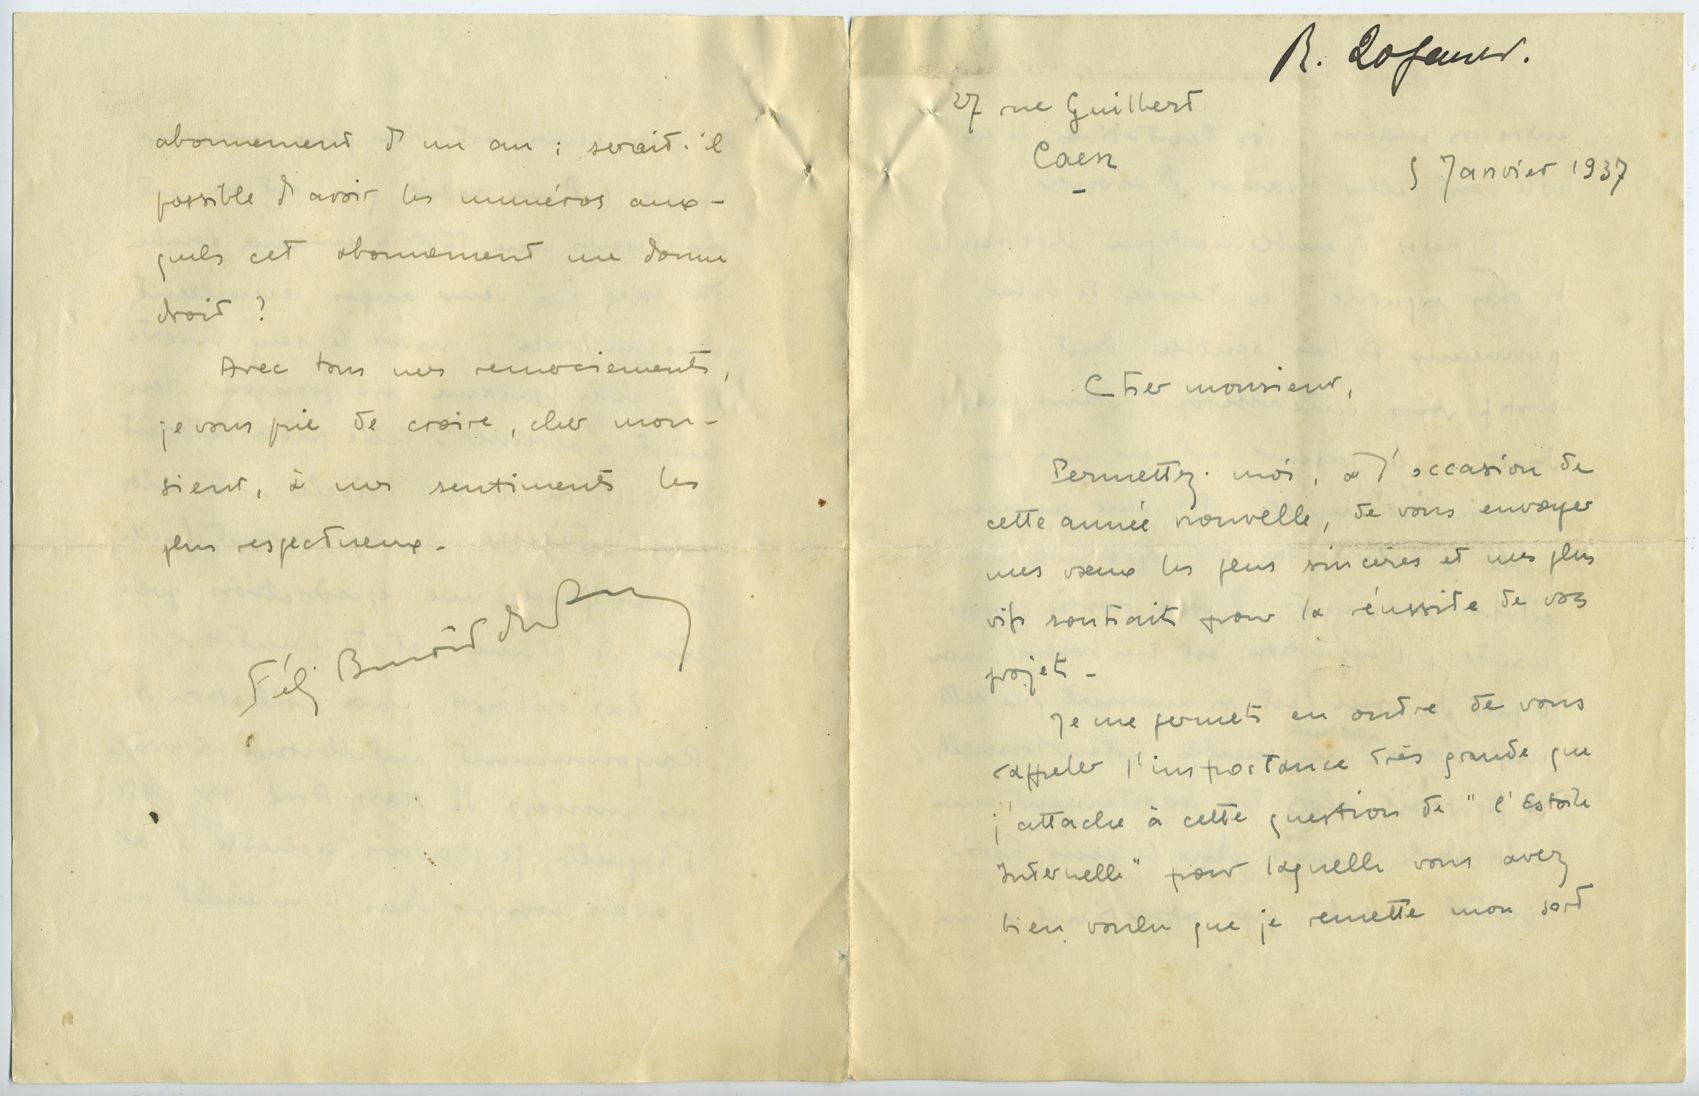 R. 20 Janvier.
27 rue Guilbert
Caen
5 Janvier 1937
Cher monsieur,
Permettez-moi, à l'occasion de
cette année nouvelle, de vous envoyer
mes vœux les plus sincères et mes plus
vifs souhaits pour la réussite de vos
projets -
Je me permets en outre de vous
rappeler l'importance très grande que
j'attache à cette question de "l'Estoile
Internelle" pour laquelle vous avez
bien voulu que je remette mon sort
abonnement d'un an ; serait-il
possible d'avoir les numéros aux-
quels cet abonnement me donne
droit ?
Avec tous mes remerciements,
je vous prie de croire, cher mon-
sieur, à mes sentiments les
plus respectueux -